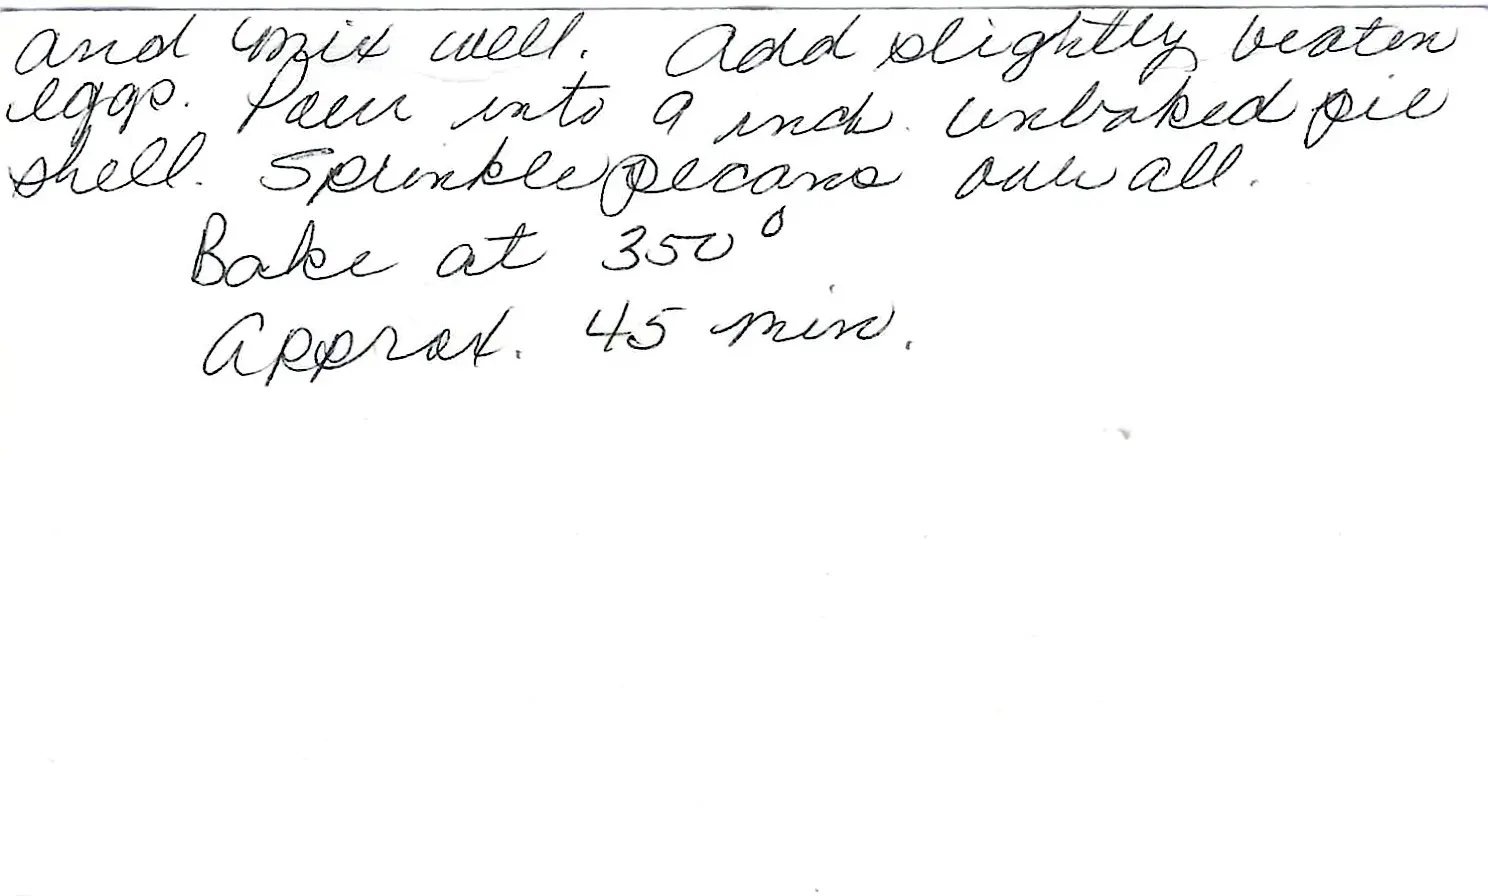 and mix well. Add slightly beaten
eggs. Pour into 9 inch unbaked pie
shell. Sprinkle pecans over all.
Bake at 350°
Approx. 45 min.